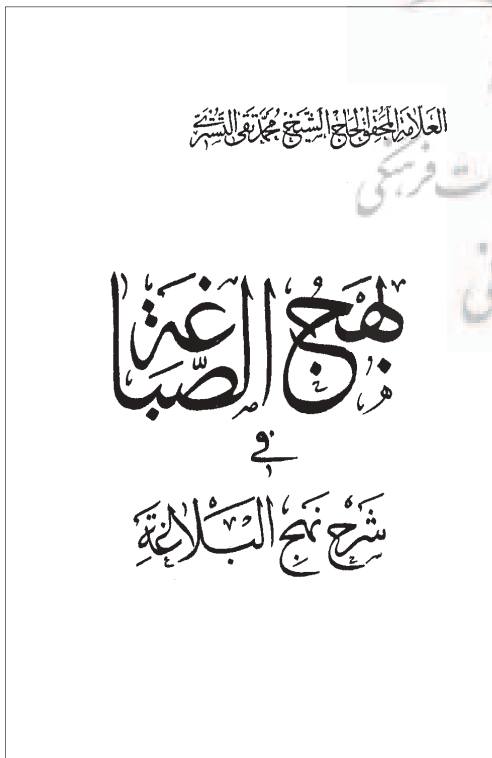 العلامة المحقق الحاج الشيخ محمد تقي التستري
بهج الصباغة
في
شرح نهج البلاغة
فرهنگی